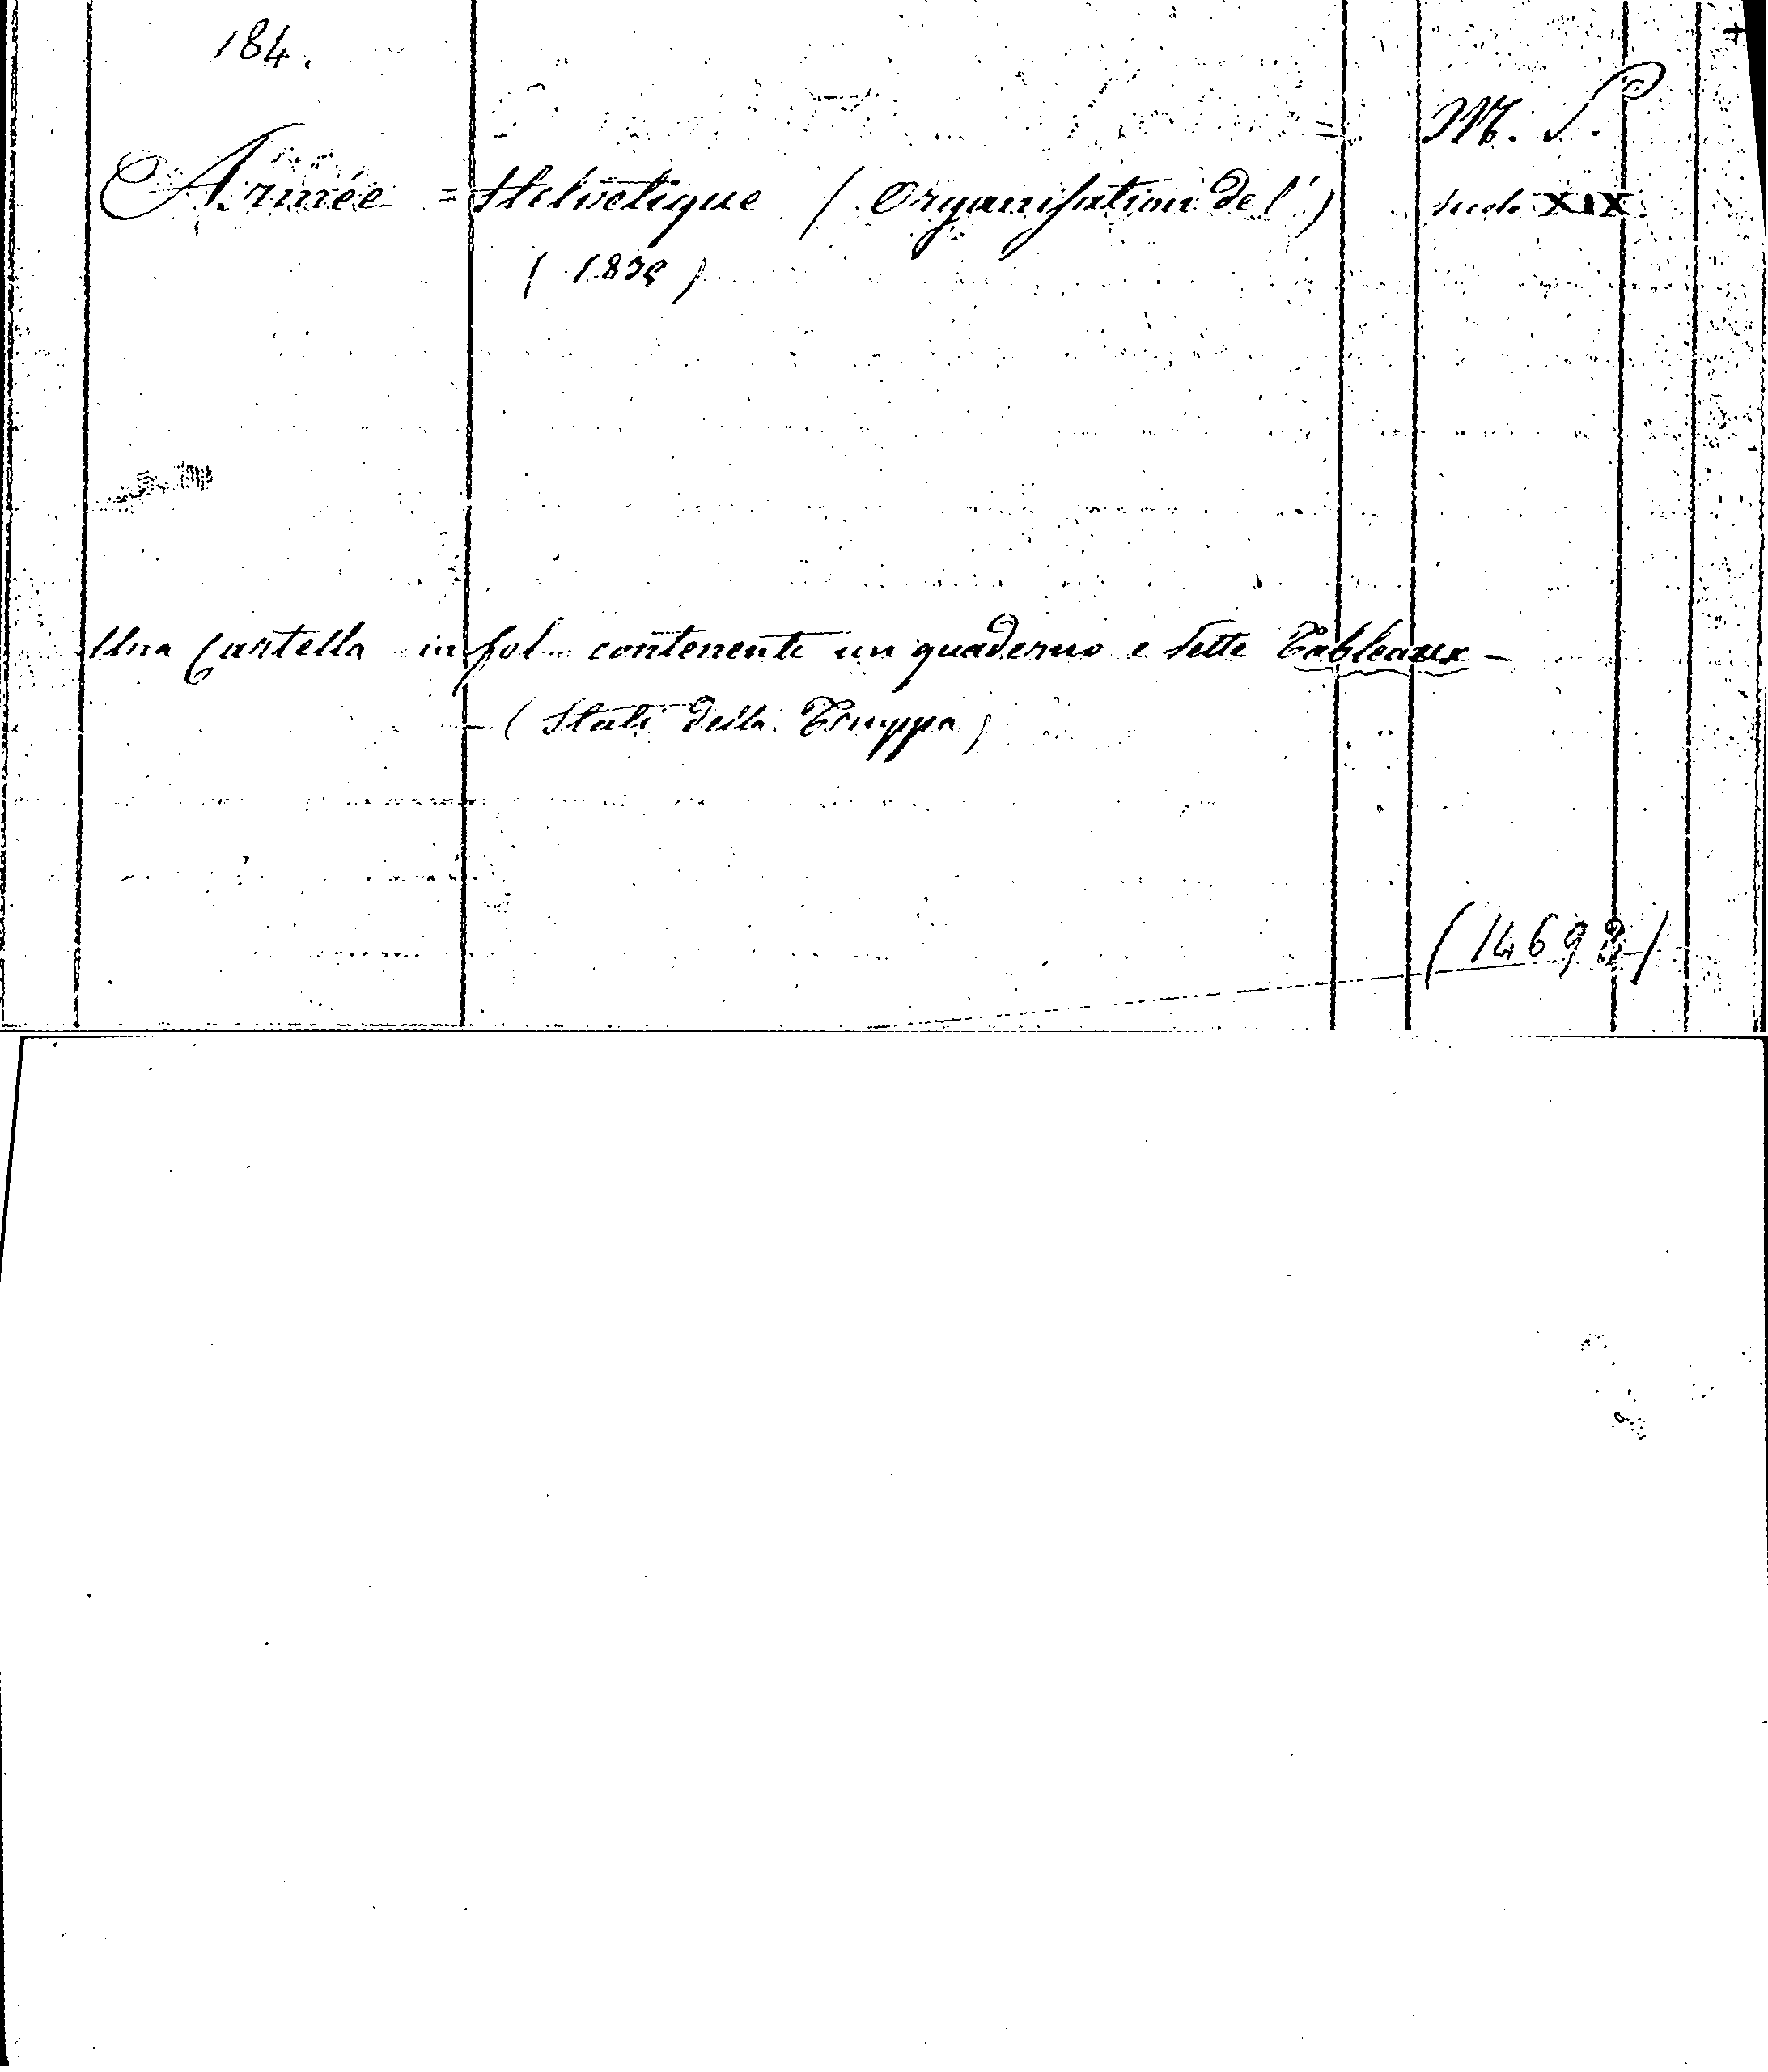 184.
M. S.
Armée = Helvetique (Organisation de l')
XIX
Una Cartella in fol. contenente un quaderno e sette Tableaux —
— (Stati della Truppa)
(14698)